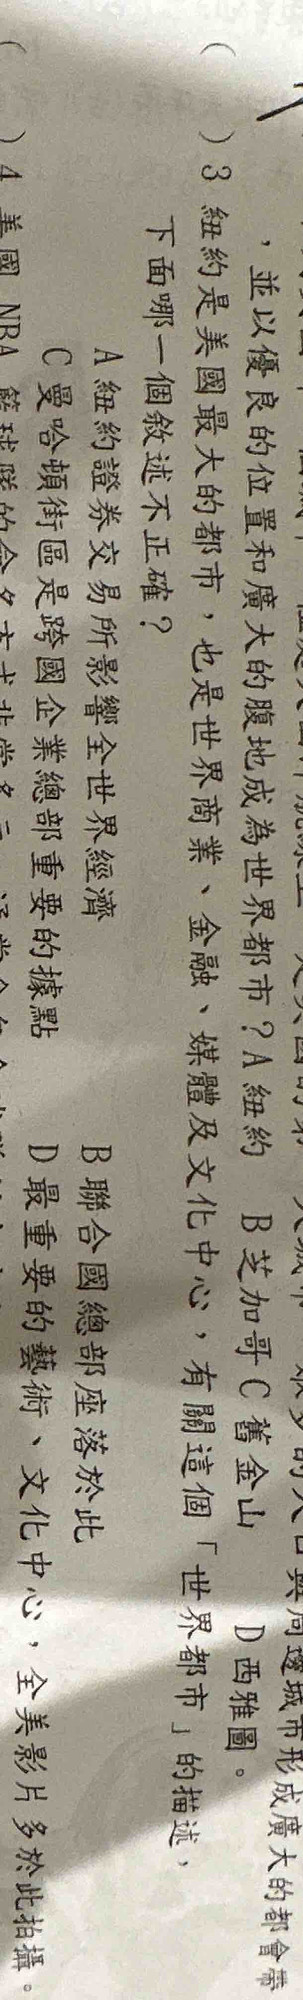 ，並以優良的位置和廣大的腹地成為世界都市？A 紐約 B 芝加哥 C 舊金山 D 西雅圖。
( )3 紐約是美國最大的都市，也是世界商業、金融、媒體及文化中心，有關這個「世界都市」的描述，
下面哪一個敘述不正確？
A 紐約證券交易所影響全世界經濟 B 聯合國總部座落於此
C 曼哈頓街區是跨國企業總部重要的據點 D 最重要的藝術、文化中心，全美影片多於此拍攝。
( )4 美國 NBA 籃球隊的命名方式非常多元